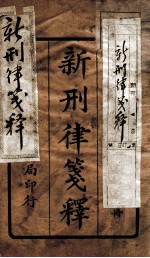 新刑律箋釋
新刑律箋釋
新刑律箋釋
局印行